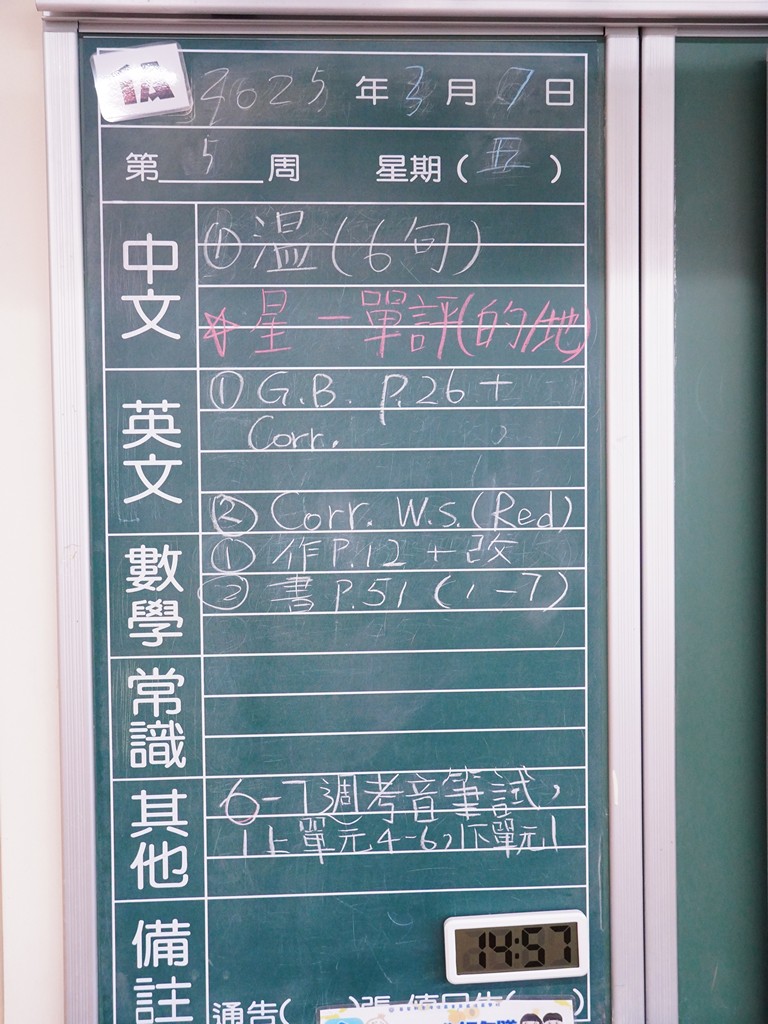 2025 年 3 月 7 日
第 5 周 星期 ( 五 )
中文
① 溫 (6句)
☆ 星一單評(的/地)
英文
① G.B. P.26 +
Corr.
② Corr. W.S. (Red)
數學
① 作 P.12 + 改
② 書 P.51 (1-7)
常識
其他
6-7週考音筆試,
1上單元4-6,1下單元1
備註
14:57
通告( )張